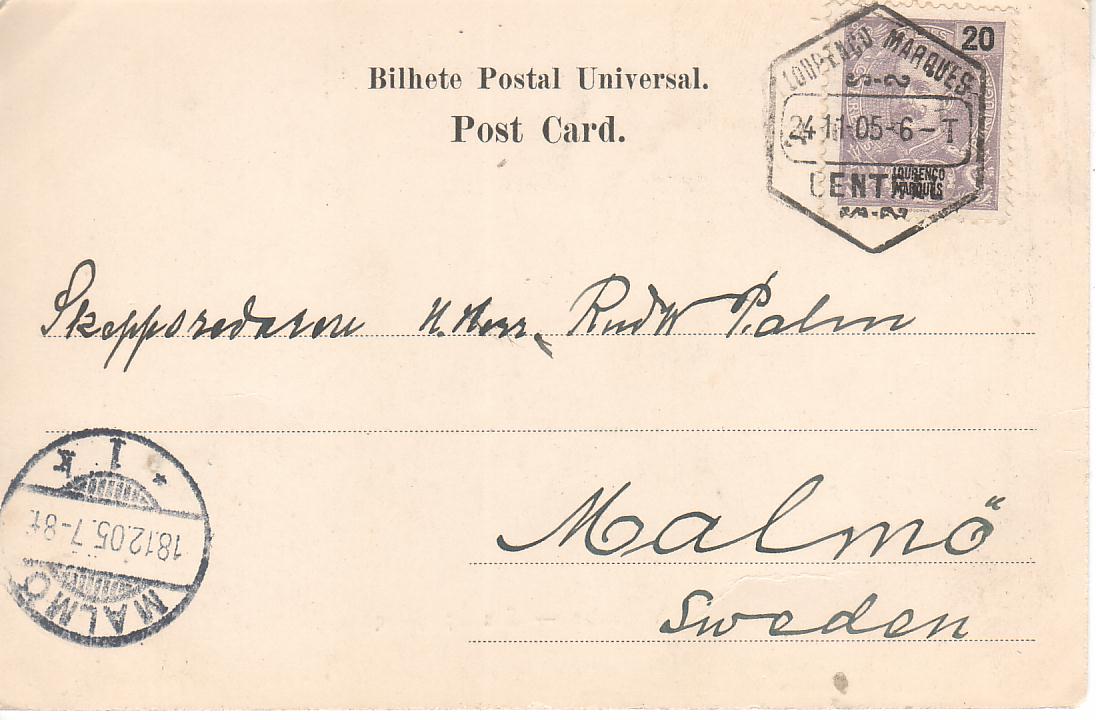 Bilhete Postal Universal.
Post Card.
20
LOURENÇO MARQUES
24 11-05-6-T
CENTRAL
LOURENÇO
MARQUES
Skeppsredaren H. Herr Rud Palm
Malmö
Sweden
* 1 K
18.12.05.7-8 f.
MALMÖ